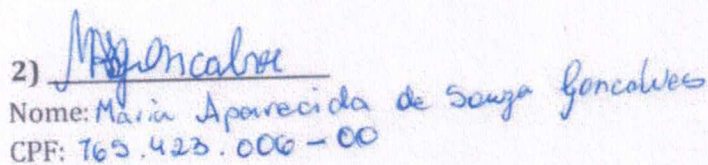 2) MAgoncalves
Nome: Maria Aparecida de Souza Goncalves
CPF: 765.423.006-00